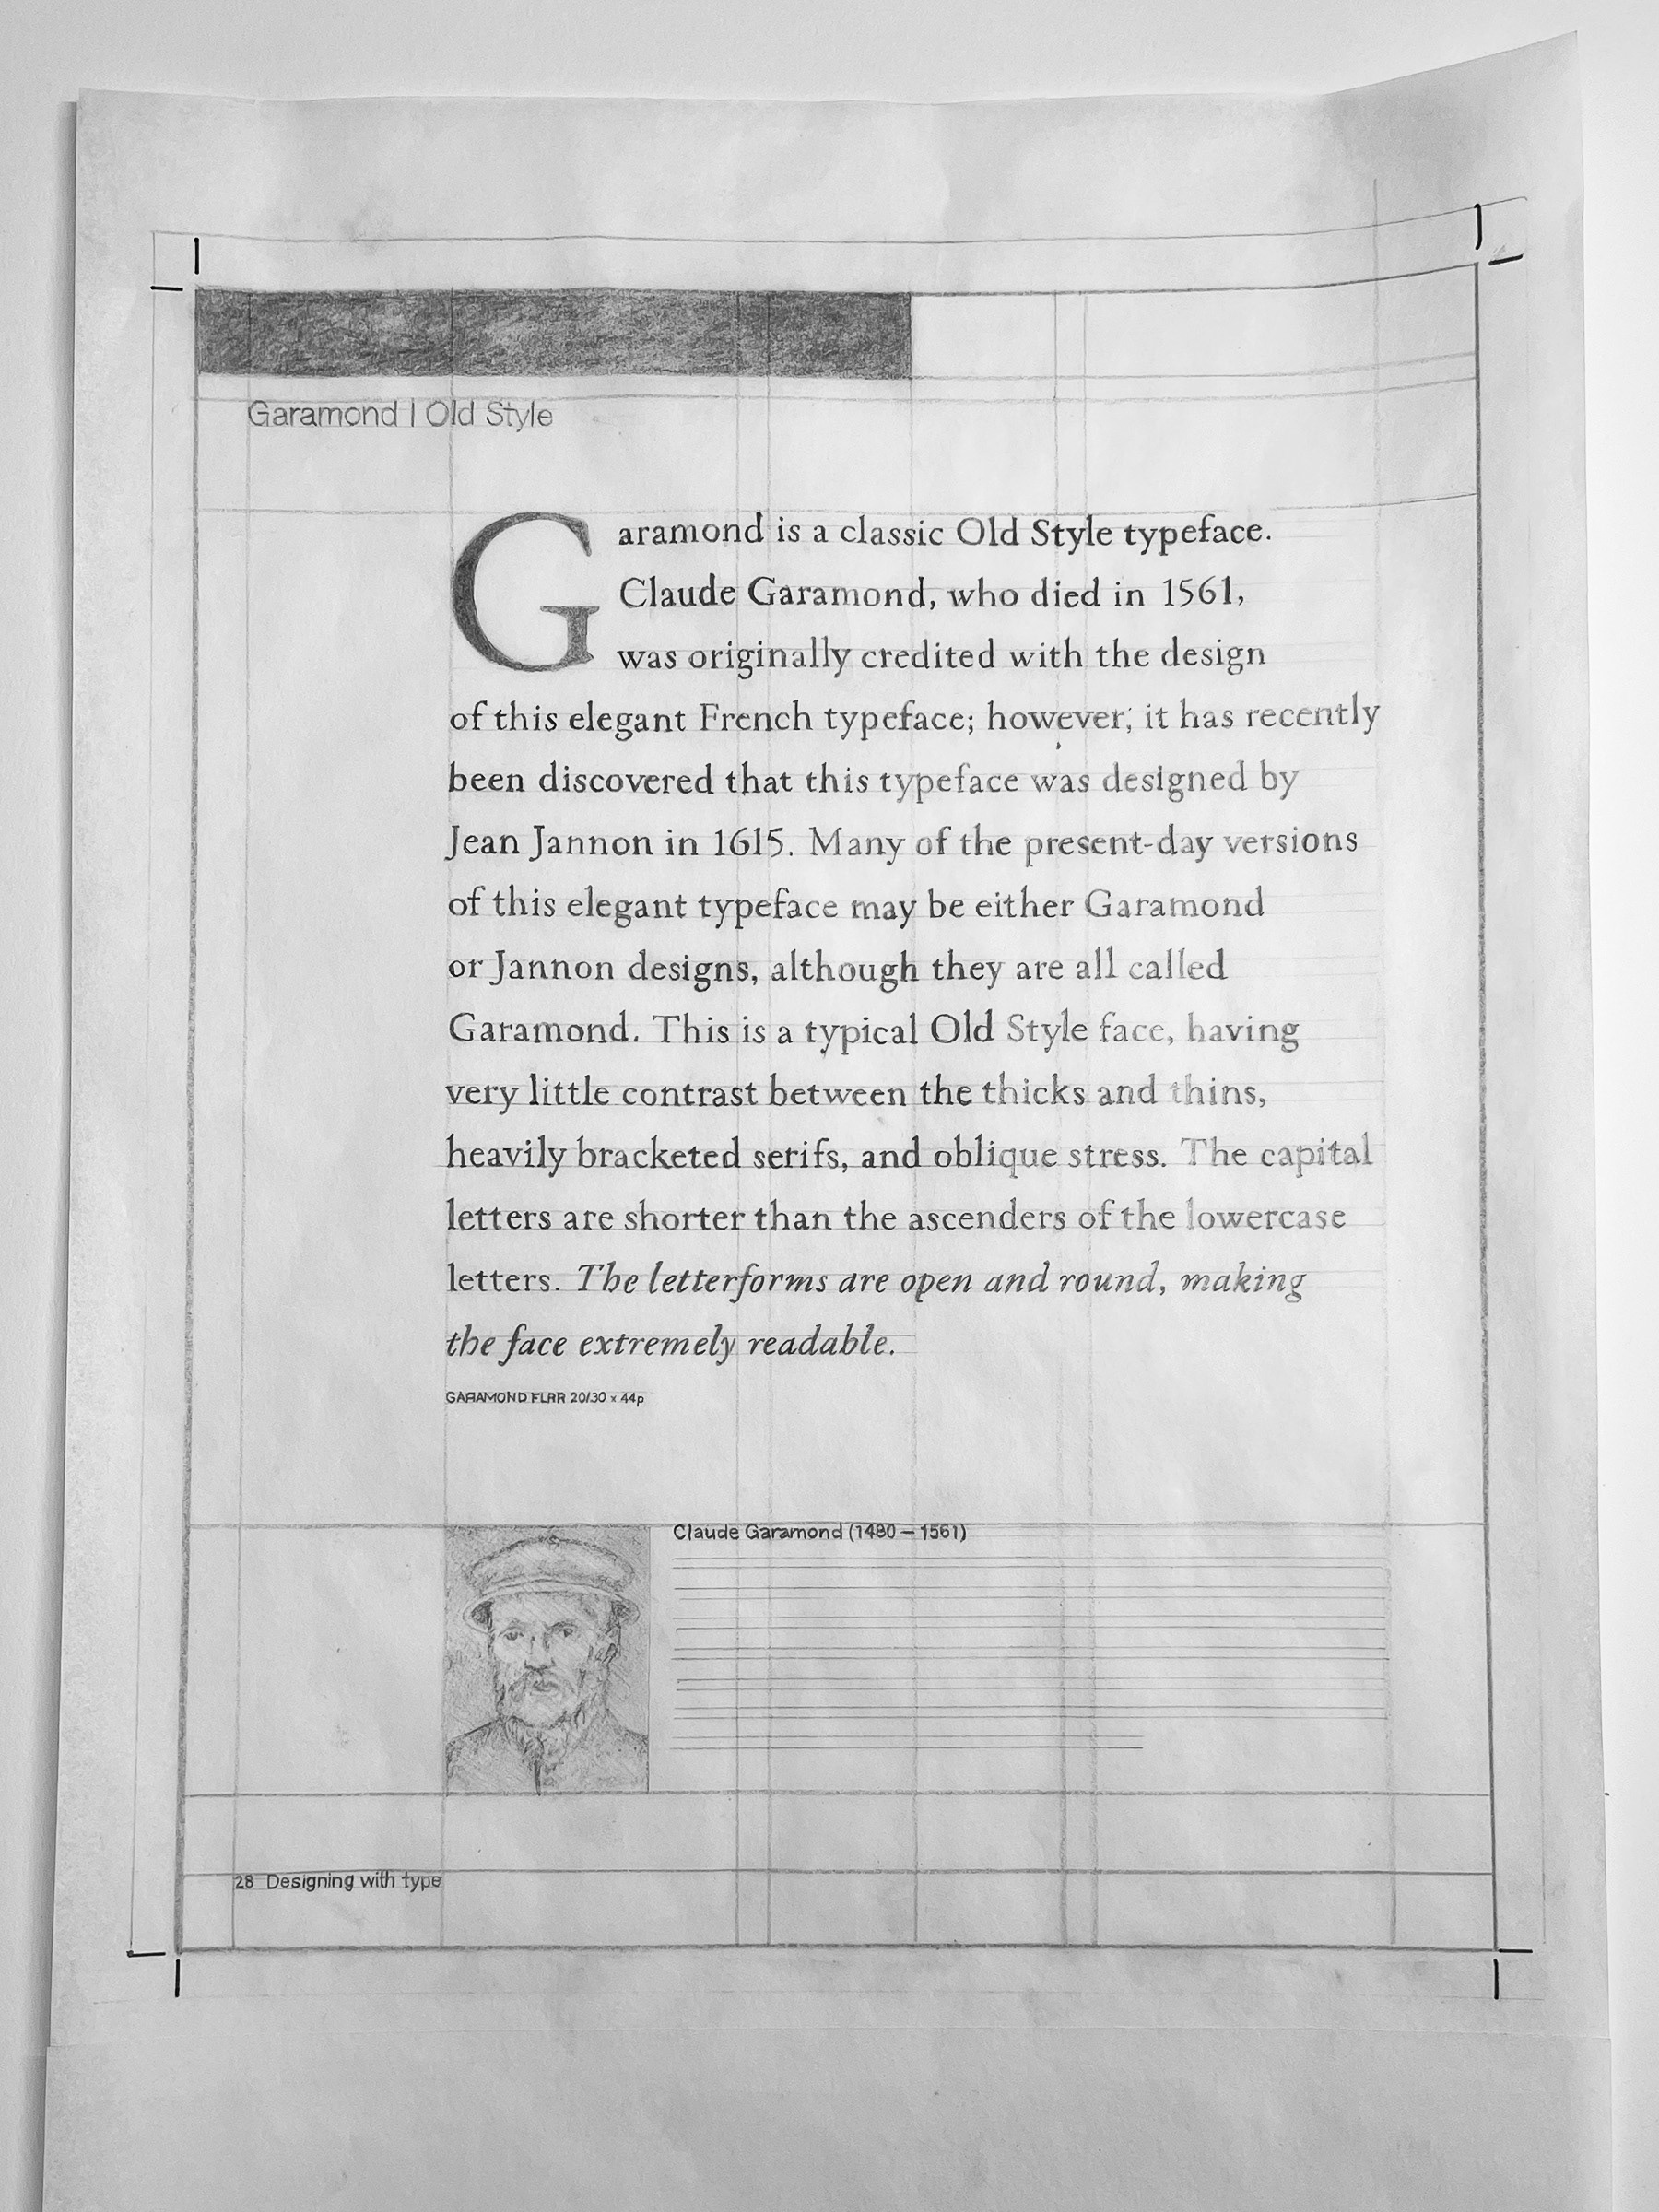 Garamond | Old Style
Garamond is a classic Old Style typeface.
Claude Garamond, who died in 1561,
was originally credited with the design
of this elegant French typeface; however, it has recently
been discovered that this typeface was designed by
Jean Jannon in 1615. Many of the present-day versions
of this elegant typeface may be either Garamond
or Jannon designs, although they are all called
Garamond. This is a typical Old Style face, having
very little contrast between the thicks and thins,
heavily bracketed serifs, and oblique stress. The capital
letters are shorter than the ascenders of the lowercase
letters. The letterforms are open and round, making
the face extremely readable.
GARAMOND FLRR 20/30 x 44p
Claude Garamond (1480 – 1561)
28 Designing with type